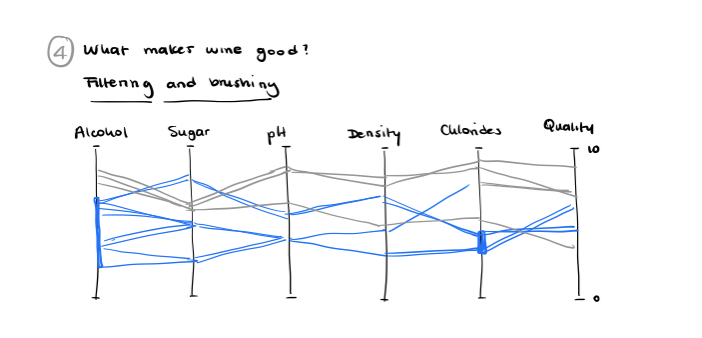 4 What makes wine good?
Filtering and brushing
Alcohol Sugar pH Density Chlorides Quality
10
0